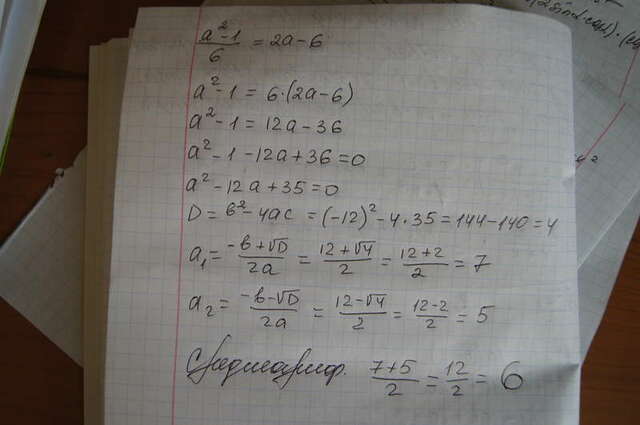 (a²-1)/6 = 2a-6
a²-1 = 6·(2a-6)
a²-1 = 12a-36
a²-1-12a+36=0
a²-12a+35=0
D = b²-4ac = (-12)²-4·35=144-140=4
a₁ = (-b+√D)/2a = (12+√4)/2 = (12+2)/2 = 7
a₂ = (-b-√D)/2a = (12-√4)/2 = (12-2)/2 = 5
(7+5)/2 = 12/2 = 6